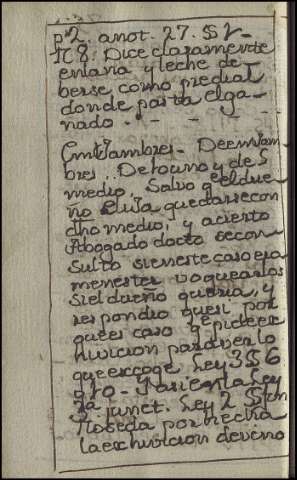 pᵃ 2. anot. 27. §§ 2.
n 8. Dice claramente
en lana y leche de
berse como predial
donde pasta el ga-
nado. - - - - -
Enxambres. De enxam
bres. De to uno y de
medio. Salvo q el due
ño quedarse con
dho medio, y acierto
Abogado docto se con
sulto si en este caso era
menester
si el dueño queria, y
respondio que si por
que es caso q pide ex
hivicion para verlo
que escoge Ley 3 § 6
y asi en la Ley
junct. Ley 2 §
por hecha
la exhivicion de vino